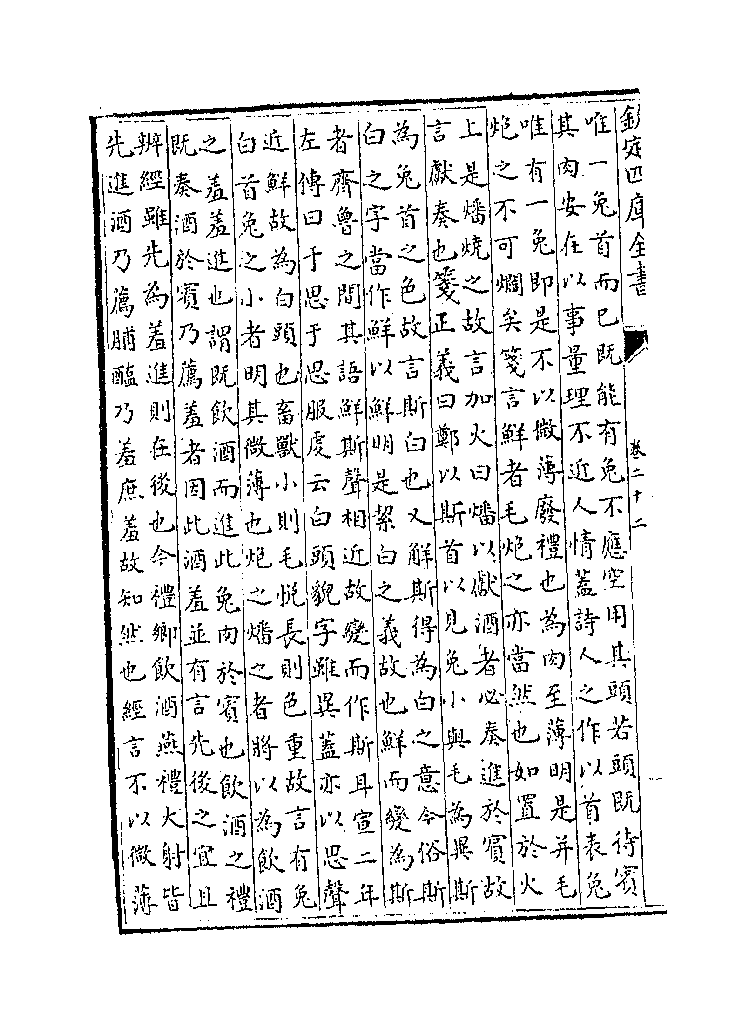 欽定四庫全書
卷二十二
唯一兔首而已既能有兔不應空用其頭若頭既待賓
其肉安在以事量理不近人情蓋詩人之作以首表兔
唯有一兔即是不以微薄廢禮也為肉至薄明是并毛
炮之不可爓矣箋言鮮者毛炮之亦當然也如置於火
上是燔燒之故言加火曰燔以獻酒者必奏進於賓故
言獻奏也箋正義曰鄭以斯首以見兔小與毛為異斯
為兔首之色故言斯白也又解斯得為白之意今俗斯
白之字當作鮮以鮮明是絜白之義故也鮮而變為斯
者齊魯之間其語鮮斯聲相近故變而作斯耳宣二年
左傳曰于思于思服虔云白頭貌字雖異蓋亦以思聲
近鮮故為白頭也畜獸小則毛悅長則色重故言有兔
白首兔之小者明其微薄也炮之燔之者將以為飲酒
之羞羞進也謂既飲酒而進此兔肉於賓也飲酒之禮
既奏酒於賓乃薦羞者因此酒羞並有言先後之宜且
辨經雖先為羞進則在後也今禮鄉飲酒燕禮大射皆
先進酒乃薦脯醢乃羞庶羞故知然也經言不以微薄